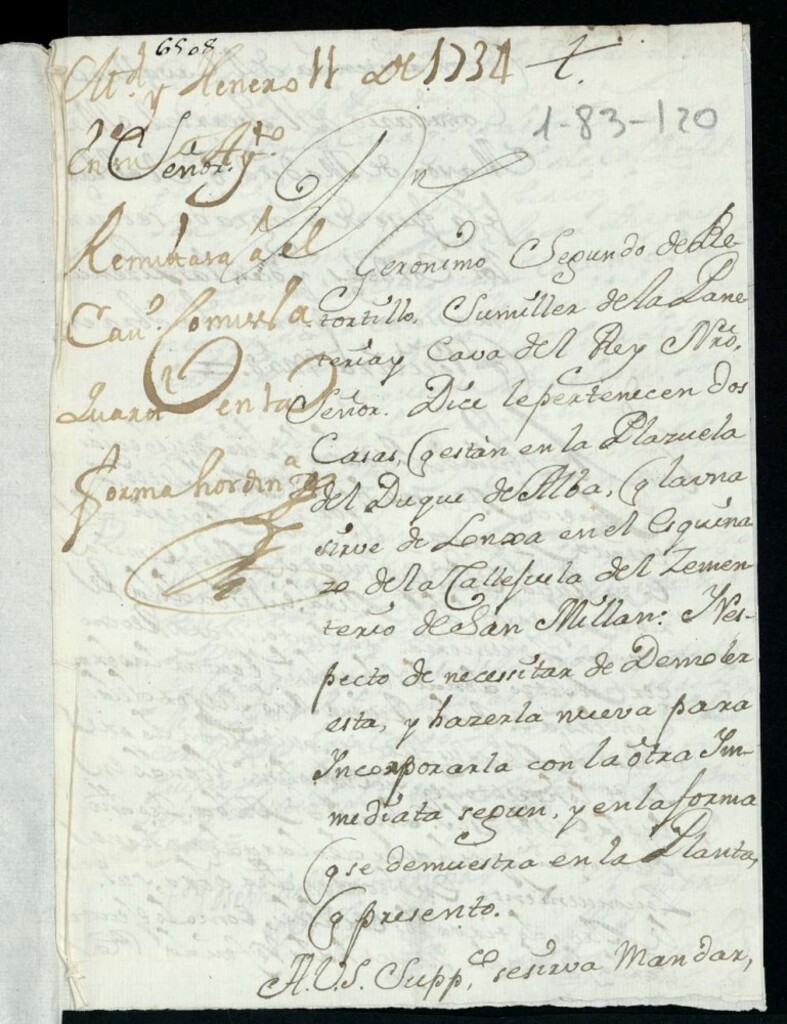 6508
M.d y Henero 11 de 1734
1-83-120
En su Ay.to
Señor
Remitasa â el
Cau.º Comiss.º
Quart.l en la
forma hordin.a
Dn
Geronimo Segundo de Re-
tortillo, Sumiller de la Pane-
teria y Cava del Rey Nro.
Señor. Dice le pertenecen dos
Casas, q están en la Plazuela
del Duque de Alba, q la una
sirve de Lonxa en el Esquina-
zo de la Callejuela del Zemen-
terio de San Millan: Y res-
pecto de necessitar de Demoler
esta, y hazerla nueva para
Incorporarla con la otra Im-
mediata segun, y en la forma
q se demuestra en la Planta,
q presento.
A.V.S. Supp.co se sirva Mandar,